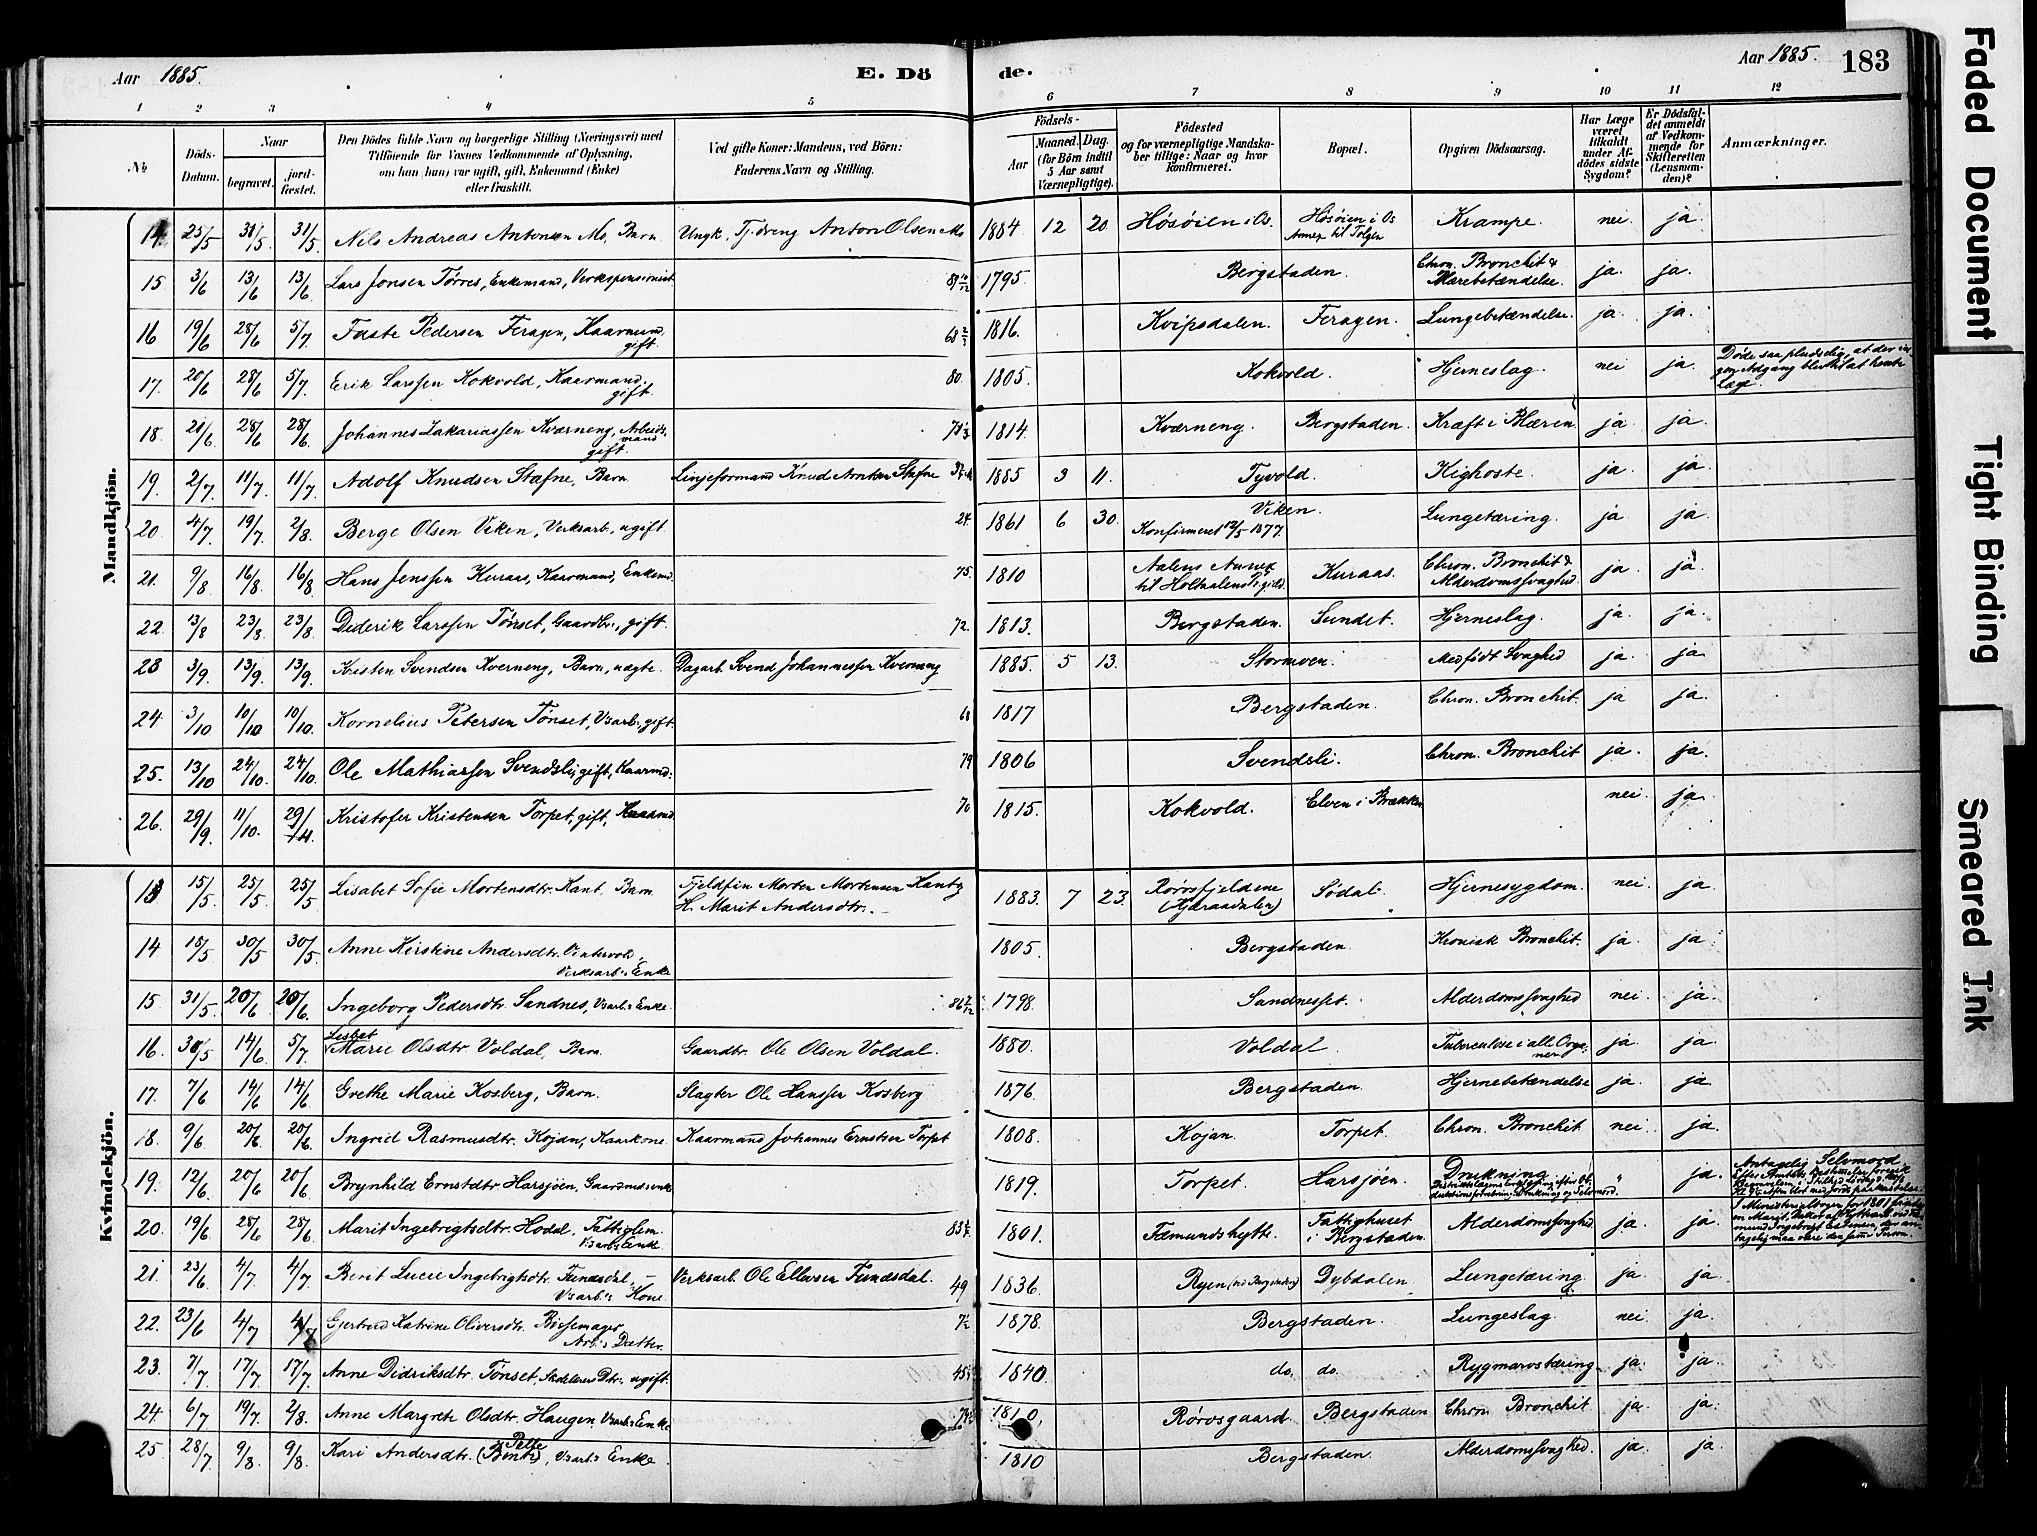 Aar 1885.
E. Dö
de.
Aar 1885.
183
1 2 3 4 5 6 7 8 9 10 11 12
No
Döds-Datum.
Naar
begravet.
jord-fæstet.
Den Dödes fulde Navn og borgerlige Stilling (Næringsvei) med
Tilföiende for Voxnes Vedkommende af Oplysning,
om han (hun) var ugift, gift, Enkemand (Enke)
eller fraskilt.
Ved gifte Koner: Mandens, ved Börn:
Faderens Navn og Stilling.
Födsels-
Aar
Maaned. Dag.
(for Börn indtil
5 Aar samt
Værnepligtige).
Födested
og for værnepligtige Mandska-
ber tillige: Naar og hvor
konfirmeret.
Bopæl.
Opgiven Dödsaarsag.
Har Læge
været
tilkaldt
under Af-
dödes sidste
Sygdom?
Er Dödsfal-
det anmeldt
af Vedkom-
mende for
Skifteretten
(Lensman-
den)?
Anmærkninger.
Mandkjön.
14 25/5 31/5 31/5 Nils Andreas Antonsen Mo, Barn Ungk., Tj.dreng Anton Olsen Mo 1884 12 20 Hósöien i Os. Hósöien i Os Annex til Tolgen Krampe nei. ja
15 3/6 13/6 13/6 Lars Jonsen Tørres, Enkemand, Verkspensionist 1795 Bergstaden. Chron. Bronchit & Blærebetændelse. ja. ja.
16 19/6 28/6 5/7 Faste Pedersen Feragen, Kaarmand gift. 1816. Kvipsdalen. Feragen. Lungebetændelse. ja. ja.
17. 20/6 28/6 5/7 Erik Larssen Kokvold, Kaarmand. gift. 80. 1805. Kokvold. Hjerneslag. nei ja. Døde saa pludselig, at der in-gen Adgang blev til at hente Læge.
18 21/6 28/6 28/6 Johannes Zakariassen Kværneng, Arbeidsmand gift. 1814. Kværneng. Bergstaden. Kræft i Blæren ja ja
19. 2/7 11/7 11/7 Adolf Knudsen Stafne, Barn Linjeformand Knud Arntsen Stafne 1885 3 11. Tyvold. Kighoste. ja ja.
20 4/7 19/7 2/8 Berge Olsen Viken, Verksarb., ugift. 24. 1861 6 30. Viken. Konfirmeret 12/5 1877. Lungetæring. ja ja.
21. 9/8 16/8 16/8 Hans Jenssen Kuraas, Kaarmand, Enkemd. 75. 1810 Aalens Annex til Holtaalens Pr.gjeld. Kuraas. Chron. Bronchit & Alderdomssvaghed. ja. ja.
22 13/8 23/8 23/8. Diderik Larssen Tønset, Gaardbr., gift. 72. 1813. Bergstaden. Sundet. Hjerneslag. ja. ja.
23 3/9. 13/9. 13/9. Kristen Svendsen Kverneng, Barn, ægte. Dagarb. Svend Johannessen Kverneng 1885. 5 13. Stormoen. Medfødt Svaghed ja. ja.
24 3/10 10/10 10/10 Kornelius Petersen Tønset, V:sarb:, gift. 68 1817 Bergstaden. Chron. Bronchit. ja ja.
25. 13/10 24/10. 24/10. Ole Mathiassen Svendsli, gift, Kaarmd. 79 1806 Svendsli. Chron. Bronchit ja. ja.
26. 29/9. 11/10. 29/11 Kristofer Kristensen Torpet, gift, Kaarmd. 70 1815. Kokvold. Elven i Brækken nei. ja.
Kvindekjön.
13 15/5 25/5. 25/5 Lisabet Sofie Mortensdtr. Kant, Barn Fjeldfin Morten Mortensen Kant og H. Marit Andersdtr. 1883. 7 23. Rørosfjeldene (Hjæraadalen) Sødal. Hjernesygdom. nei. ja
14 18/5 30/5 30/5. Anne Kirstine Andersdtr. Vintervold, Verksarb:s Enke 1805. Bergstaden. Kronisk Bronchit. ja. ja.
15 31/5. 20/6 20/6. Ingeborg Pedersdtr. Sandnes, V:sarb:s Enke 86 7/12 1798. Sandneset. Alderdomssvaghed nei. ja.
16. 30/5 14/6 5/7. Lisbet Marie Olsdtr. Voldal, Barn. Gaardbr. Ole Olsen Voldal. 1880. Voldal. Tuberculose i alle Orga-ner ja. ja.
17. 7/6 14/6 14/6. Grethe Marie Kosberg, Barn. Slagter Ole Hanssen Kosberg 1876. Bergstaden. Hjernebetændelse ja. ja
18. 9/6 20/6 20/6. Ingrid Rasmusdtr. Kojan, Kaarkone Kaarmand Johannes Erntsen Torpet 1808. Kojan. Torpet. Chron. Bronchit. nei. ja.
19. 12/6. 20/6 20/6. Brynhild Ernstdtr Harsjøen, Gaardmds enke 1819. Torpet. Harsjøen. Drukning. ja. Antagelig Selvmord.
20. 19/6 28/6 28/6. Marit Ingebrigtsdtr. Hodal, Fattiglem. V:sarb:s Enke. 1801. Fæmundshytte. Fattighuset i Bergstaden. Alderdomssvaghed. ja. ja. I Ministerialbogen for 1801 findes
21. 23/6 4/7. 4/7. Berit Lucie Ingebrigtsdtr. Funæsdal, V:sarb:s Kone. Verksarb. Ole Ellevsen Funæsdal. 49 1836. Ryen Dybdalen. Lungetæring ja. ja.
22. 23/6 4/7 4/7 Gjertrud Katrine Oliversdtr. Bøssemager, Arb:s Datter. 7½ 1878. Bergstaden. Lungeslag. nei. ja.
23. 7/7 17/7. 17/7. Anne Didriksdtr. Tønset, ugift. 1840. do. do. Rygmarvstæring. ja. ja.
24. 6/7 19/7 2/8. Anne Margrete Olsdtr. Haugen, V:sarb:s Enke 1810. Rørosgaard. Bergstaden Chron. Bronchit ja. ja.
25. 28/7 9/8. 9/8. Kari Andersdtr. Pelle, V:sarb:s Enke. 1810 Bergstaden. Alderdomssvaghed. ja. ja.
Faded Document
Tight Binding
Smeared Ink